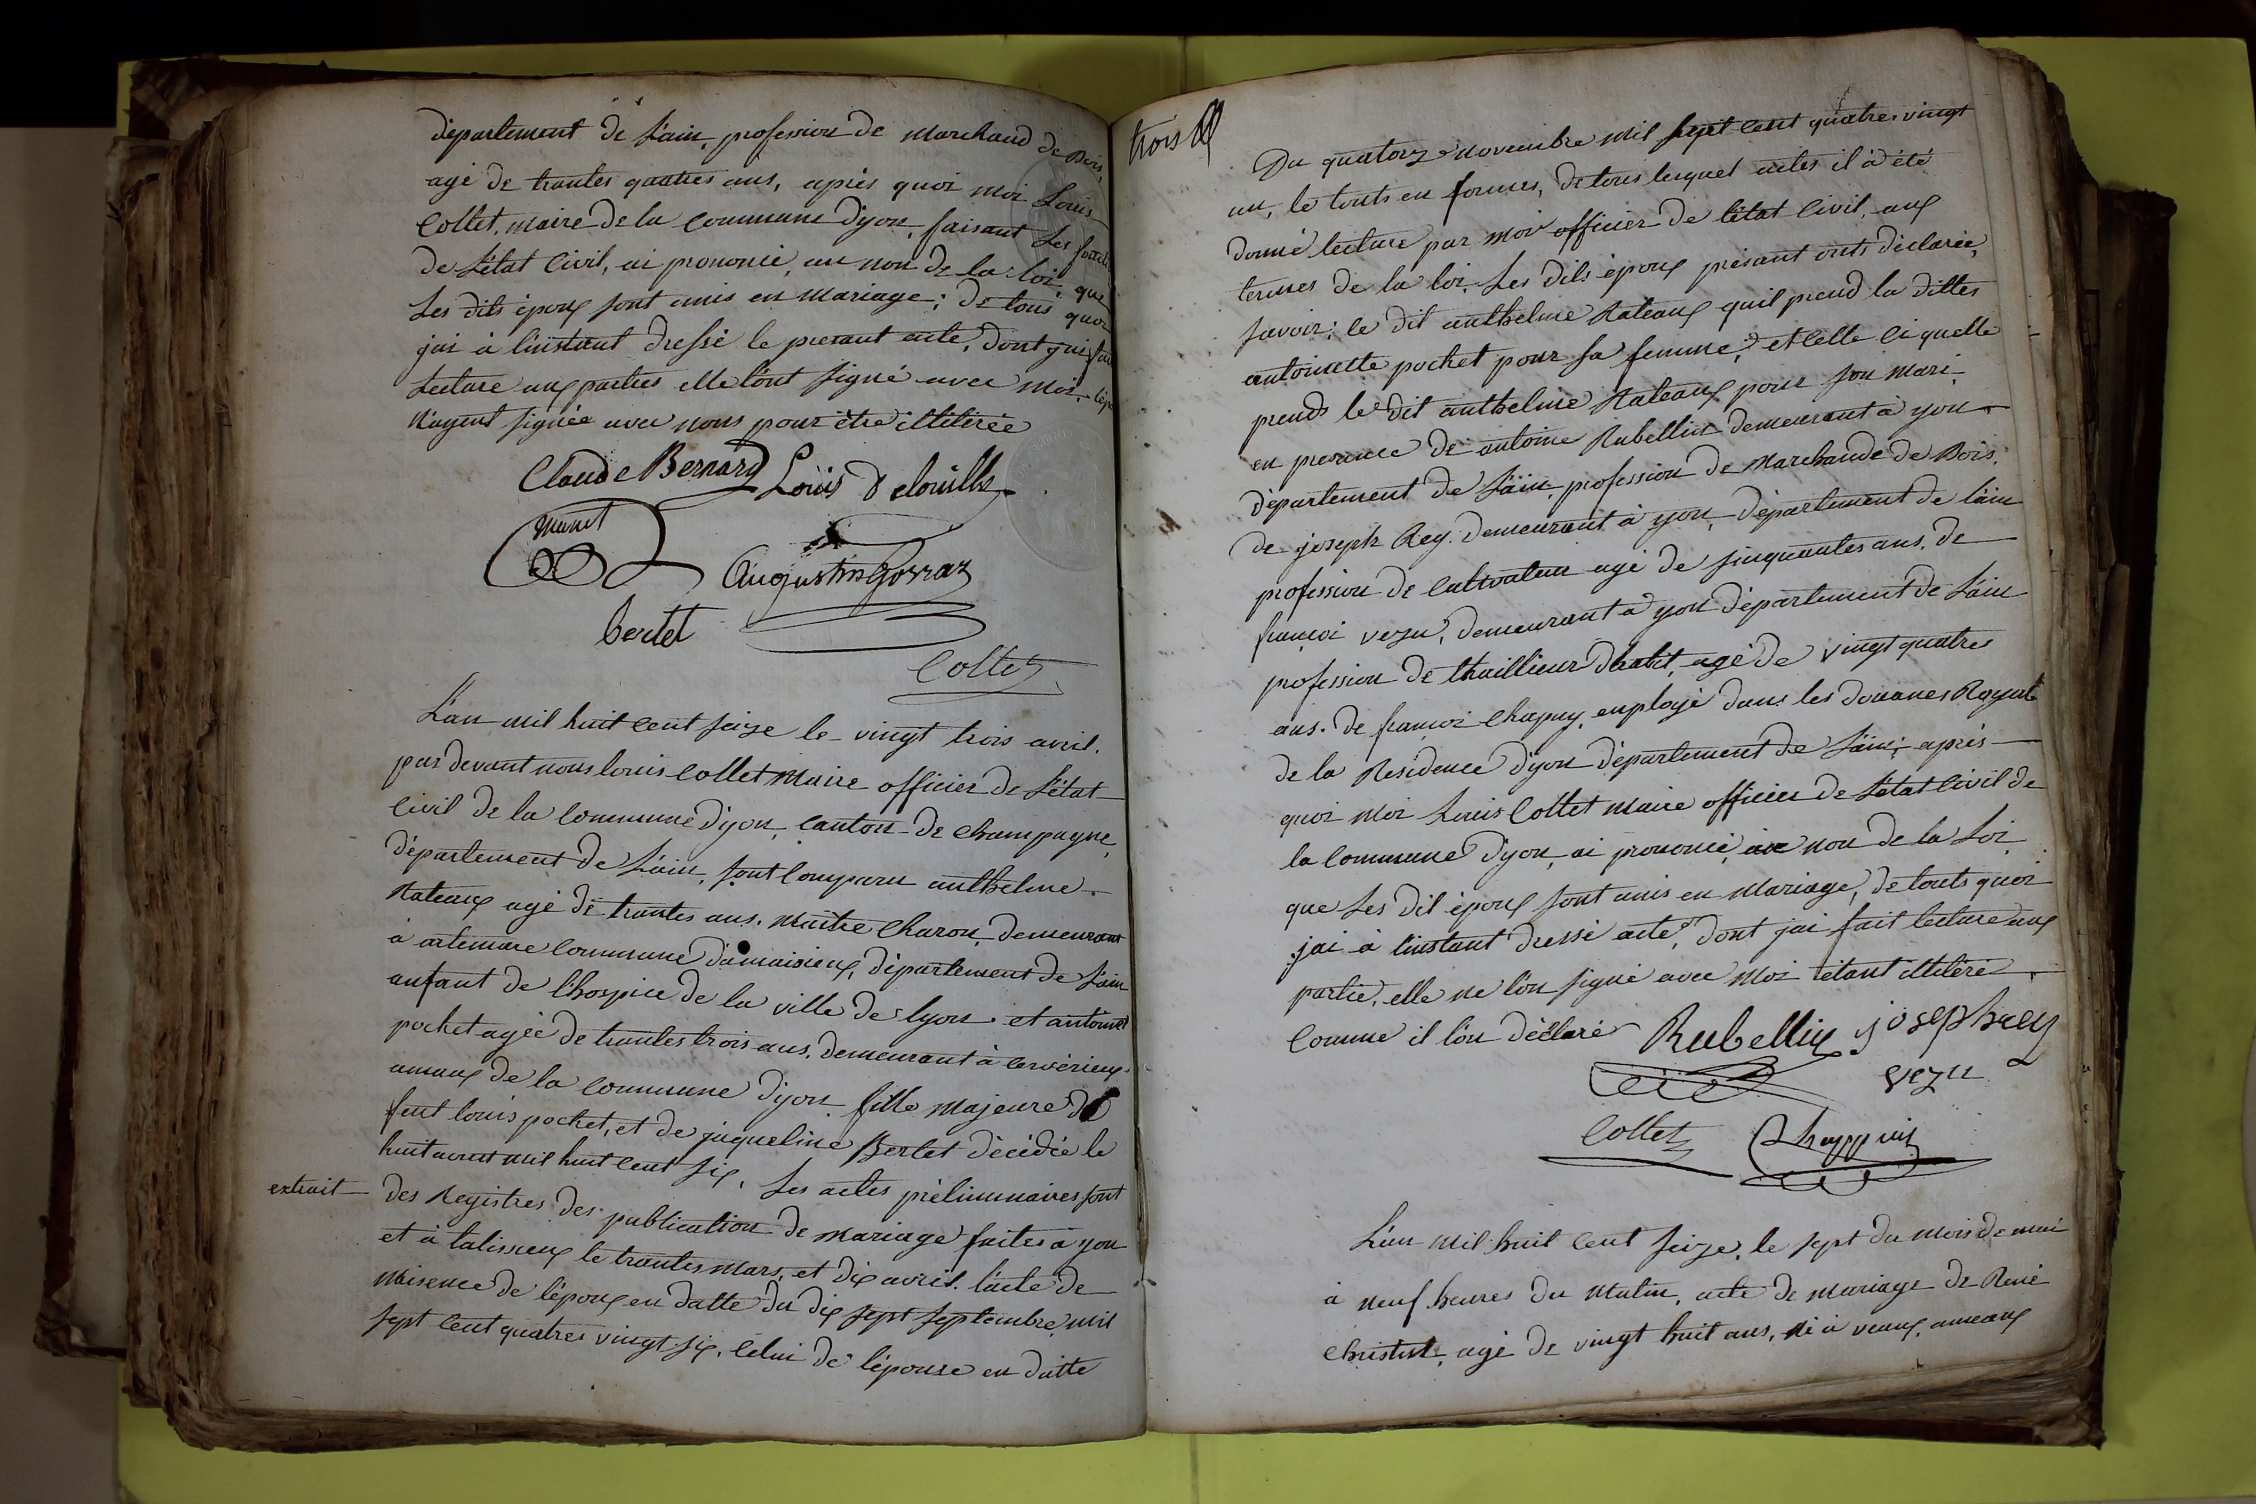 département de L'ain, profession de Marchand de Bois,
agé de trantes quatres ans, après quoi moi Louis
Collet, maire de la commune d'yon, faisant Les
de L'état Civil, ai prononcé, au non de la loi, que
Les dits époux sont unis en mariage; de tous quoi
jai à l'instant dressé le present acte, dont jai fait
Lecture aux parties elle l'ont signé avec moi,
N'ayent signée avec nous pour être illitérée
Claude Bernard Louis Delouille
munet
Augustin Gorraz
bertet
Collet
L'an mil huit cent seize le vingt trois avril.
par devant nous louis Collet Maire officier de L'état
Civil de la Commune d'yon, canton de Champagne,
département de L'ain, sont Comparu anthelme
Nateaux agé de trantes ans, maitre Charon, demeurant
à artemare Commune d'amaisieux, département de L'ain
anfant de l'hospice de la ville de lyon et antoinet
pochet agée de trantes trois ans, demeurant à cervérieux
amaux de la Commune d'yon fille majeure de
feut louis pochet, et de jaqueline Bertet décédée le
huit aoust mil huit cent six, Les actes préliminaires sont
extrait des Registres des publication de mariage faites à yon
et à talissieux le trantes mars, et dix avril. l'acte de
Naisence de l'époux en datte du dix sept septembre mil
sept cent quatres vingt six, Celui de l'épouse en datte
trois
Du quatorze novembre mil sept cent quatres vingt
un, le touts en formes, de tous lesquel actes il à été
donné lecture par moi officier de l'état Civil, aux
termes de la loi. Les dits époux présant onts déclarée,
savoir; le dit anthelme Nateaux quil prend la dittes
antoinette pochet pour sa femme; et celle ci quelle
prends le dit anthelme Nateaux pour son mari,
en presence de antoine Rubellin demeurant à yon
département de L'ain, profession de Marchande de Bois,
de joseph Rey demeurant à yon, département de l'ain
profession de Cultivateur agé de sinquantes ans, de
françoi vezu, demeurant à yon département de L'ain
profession de thaillieur d'habit, agé de vingt quatres
ans. De françoi Chapuy, employé dans les douanes Royale
de la Residence d'yon département de L'ain; après
quoi moi Louis Collet maire officier de L'état Civil de
la Commune d'yon, ai prononcé, au non de la Loi
que Les dit époux sont unis en Mariage, de touts quoi
jai à l'instant dressé acte, dont jai fait lecture aux
partie, elle ne l'on signé avec moi étant illitéré
Comme il l'on déclaré Rubellin joseph rey
vezu
Collet
L'an mil huit cent seize, le sept du mois de mai
à neuf heures du Matin, acte de mariage de René
Christin, agé de vingt huit ans, né à vaux, amaux